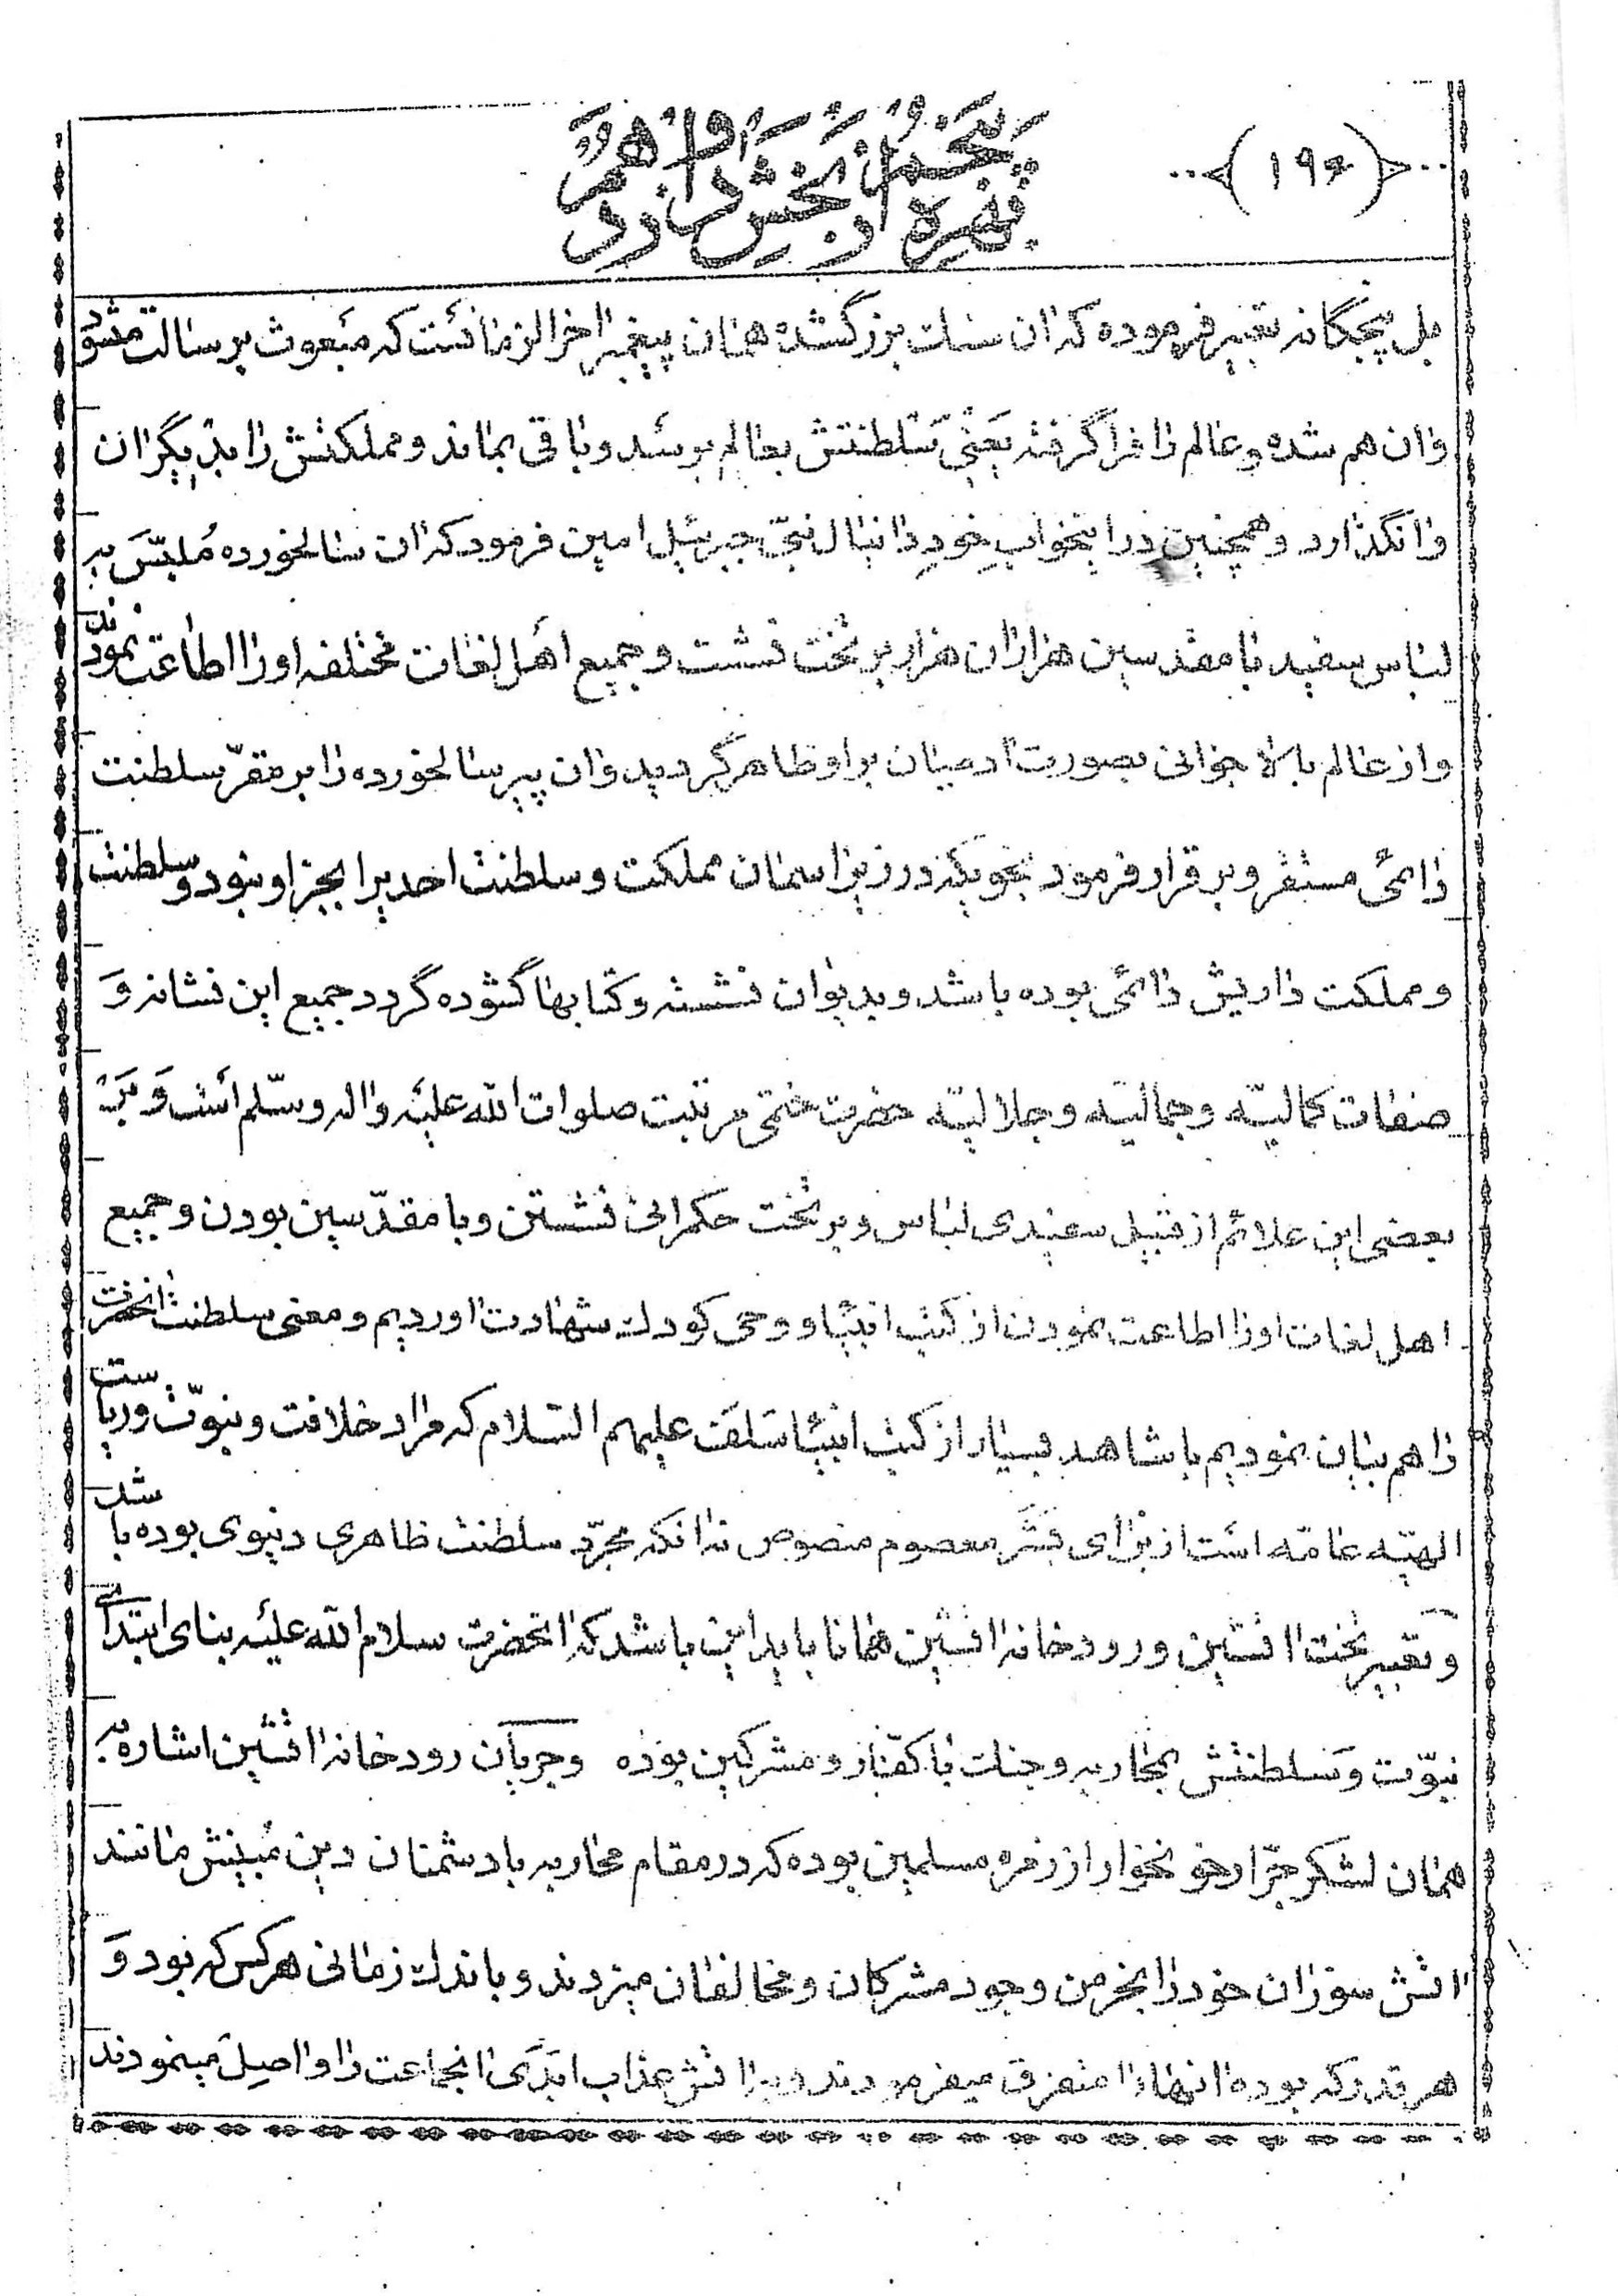 (۱۹۶)
پنجم از بخش دوازدهم
فقره
ملل پنجگانه تعبیر فرموده که ان سنك بزرگشده همان پیغمبر اخرالزمانست که مبعوث برسالت میشود
وان هم شده و عالم را فرا گرفته یعنی سلطنتش بعالم برسد و باقی بماند و مملکتش را بدیگران
وانگذارد و همچنین در اینخواب خود دانیال نبی جبرئیل امین فرمود که ان سالخورده ملبس به
لباس سفید با مقدسین هزاران هزار بر تخت نشست و جمیع اهل لغات مختلفه او را اطاعت نمودند
و از عالم بالا جوانی بصورت ادمیان بر او ظاهر گردید و ان پیر سالخورده را بر مقر سلطنت
دائمی مستقر و برقرار فرمود بنحویکه در زیر اسمان مملکت و سلطنت احدیرا بجز او نبود و سلطنت
و مملکت داریش دائمی بوده باشد و بدیوان نشسته و کتابها گشوده گردد جمیع این نشانه و
صفات کمالیّه و جمالیّه و جلالیّه حضرت ختمی مرتبت صلوات الله علیه واله وسلّم است و بر
بعضی این علائم از قبیل سفیدی لباس و بر تخت حکمرانی نشستن و با مقدّسین بودن و جمیع
اهل لغات او را اطاعت نمودن از کتب انبیا و وحی کودك شهادت اوردیم و معنی سلطنت انحضرت
را هم بیان نمودیم با شاهد بسیار از کتب انبیا سلف علیهم السّلام که مراد خلافت و نبوّت و ریاست
الهیّه عامّه است از برای بشر معصوم منصوص نه انکه مجرّد سلطنت ظاهری دنیوی بوده باشد
و تعبیر تخت اتشین و رودخانه اتشین همانا باید این باشد که انحضرت سلام الله علیه بنای ابتدائی
نبوّت و سلطنتش بمحاربه و جنك با کفّار و مشرکین بوده و جریان رودخانه اتشین اشاره به
همان لشکر جرّار خونخوار از زمره مسلمین بوده که در مقام محاربه با دشمنان دین مبینش مانند
اتش سوزان خود را بخرمن وجود مشرکان و مخالفان میزدند و باندك زمانی هر کس که بود و
هر قدر که بوده انها را متفرق میفرمودند و بر اتش عذاب ابدی انجماعت را واصل مینمودند